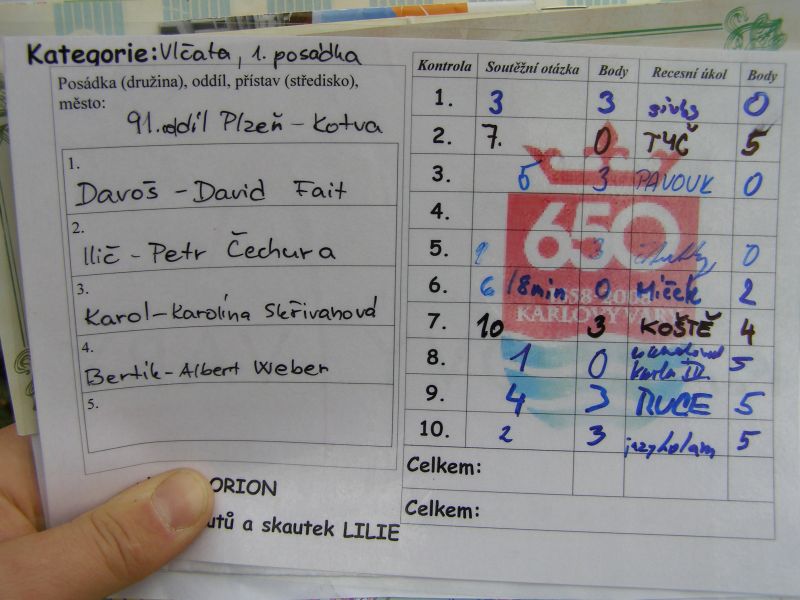 Kategorie: Vlčata, 1. posádka
Posádka (družina), oddíl, přístav (středisko),
město:
91. oddíl Plzeň - Kotva
1.
Davoš - David Fait
2.
Ilič - Petr Čechura
3.
Karol - Karolína Skřivanová
4.
Bertík - Albert Weber
5.
ORION
utů a skautek LILIE
Kontrola Soutěžní otázka Body Recesní úkol Body
1. 3 3 0
2. 7. 0 TYČ 5
3. 5 3 PAVOUK 0
4.
5. 3 0
6. 6 /8min 0 Míček 2
7. 10 3 KOŠTĚ 4
8. 1 0 Karla IV. 5
9. 4 3 RUCE 5
10. 2 3 jazykolam 5
Celkem:
Celkem:
650
KARLOVY VARY